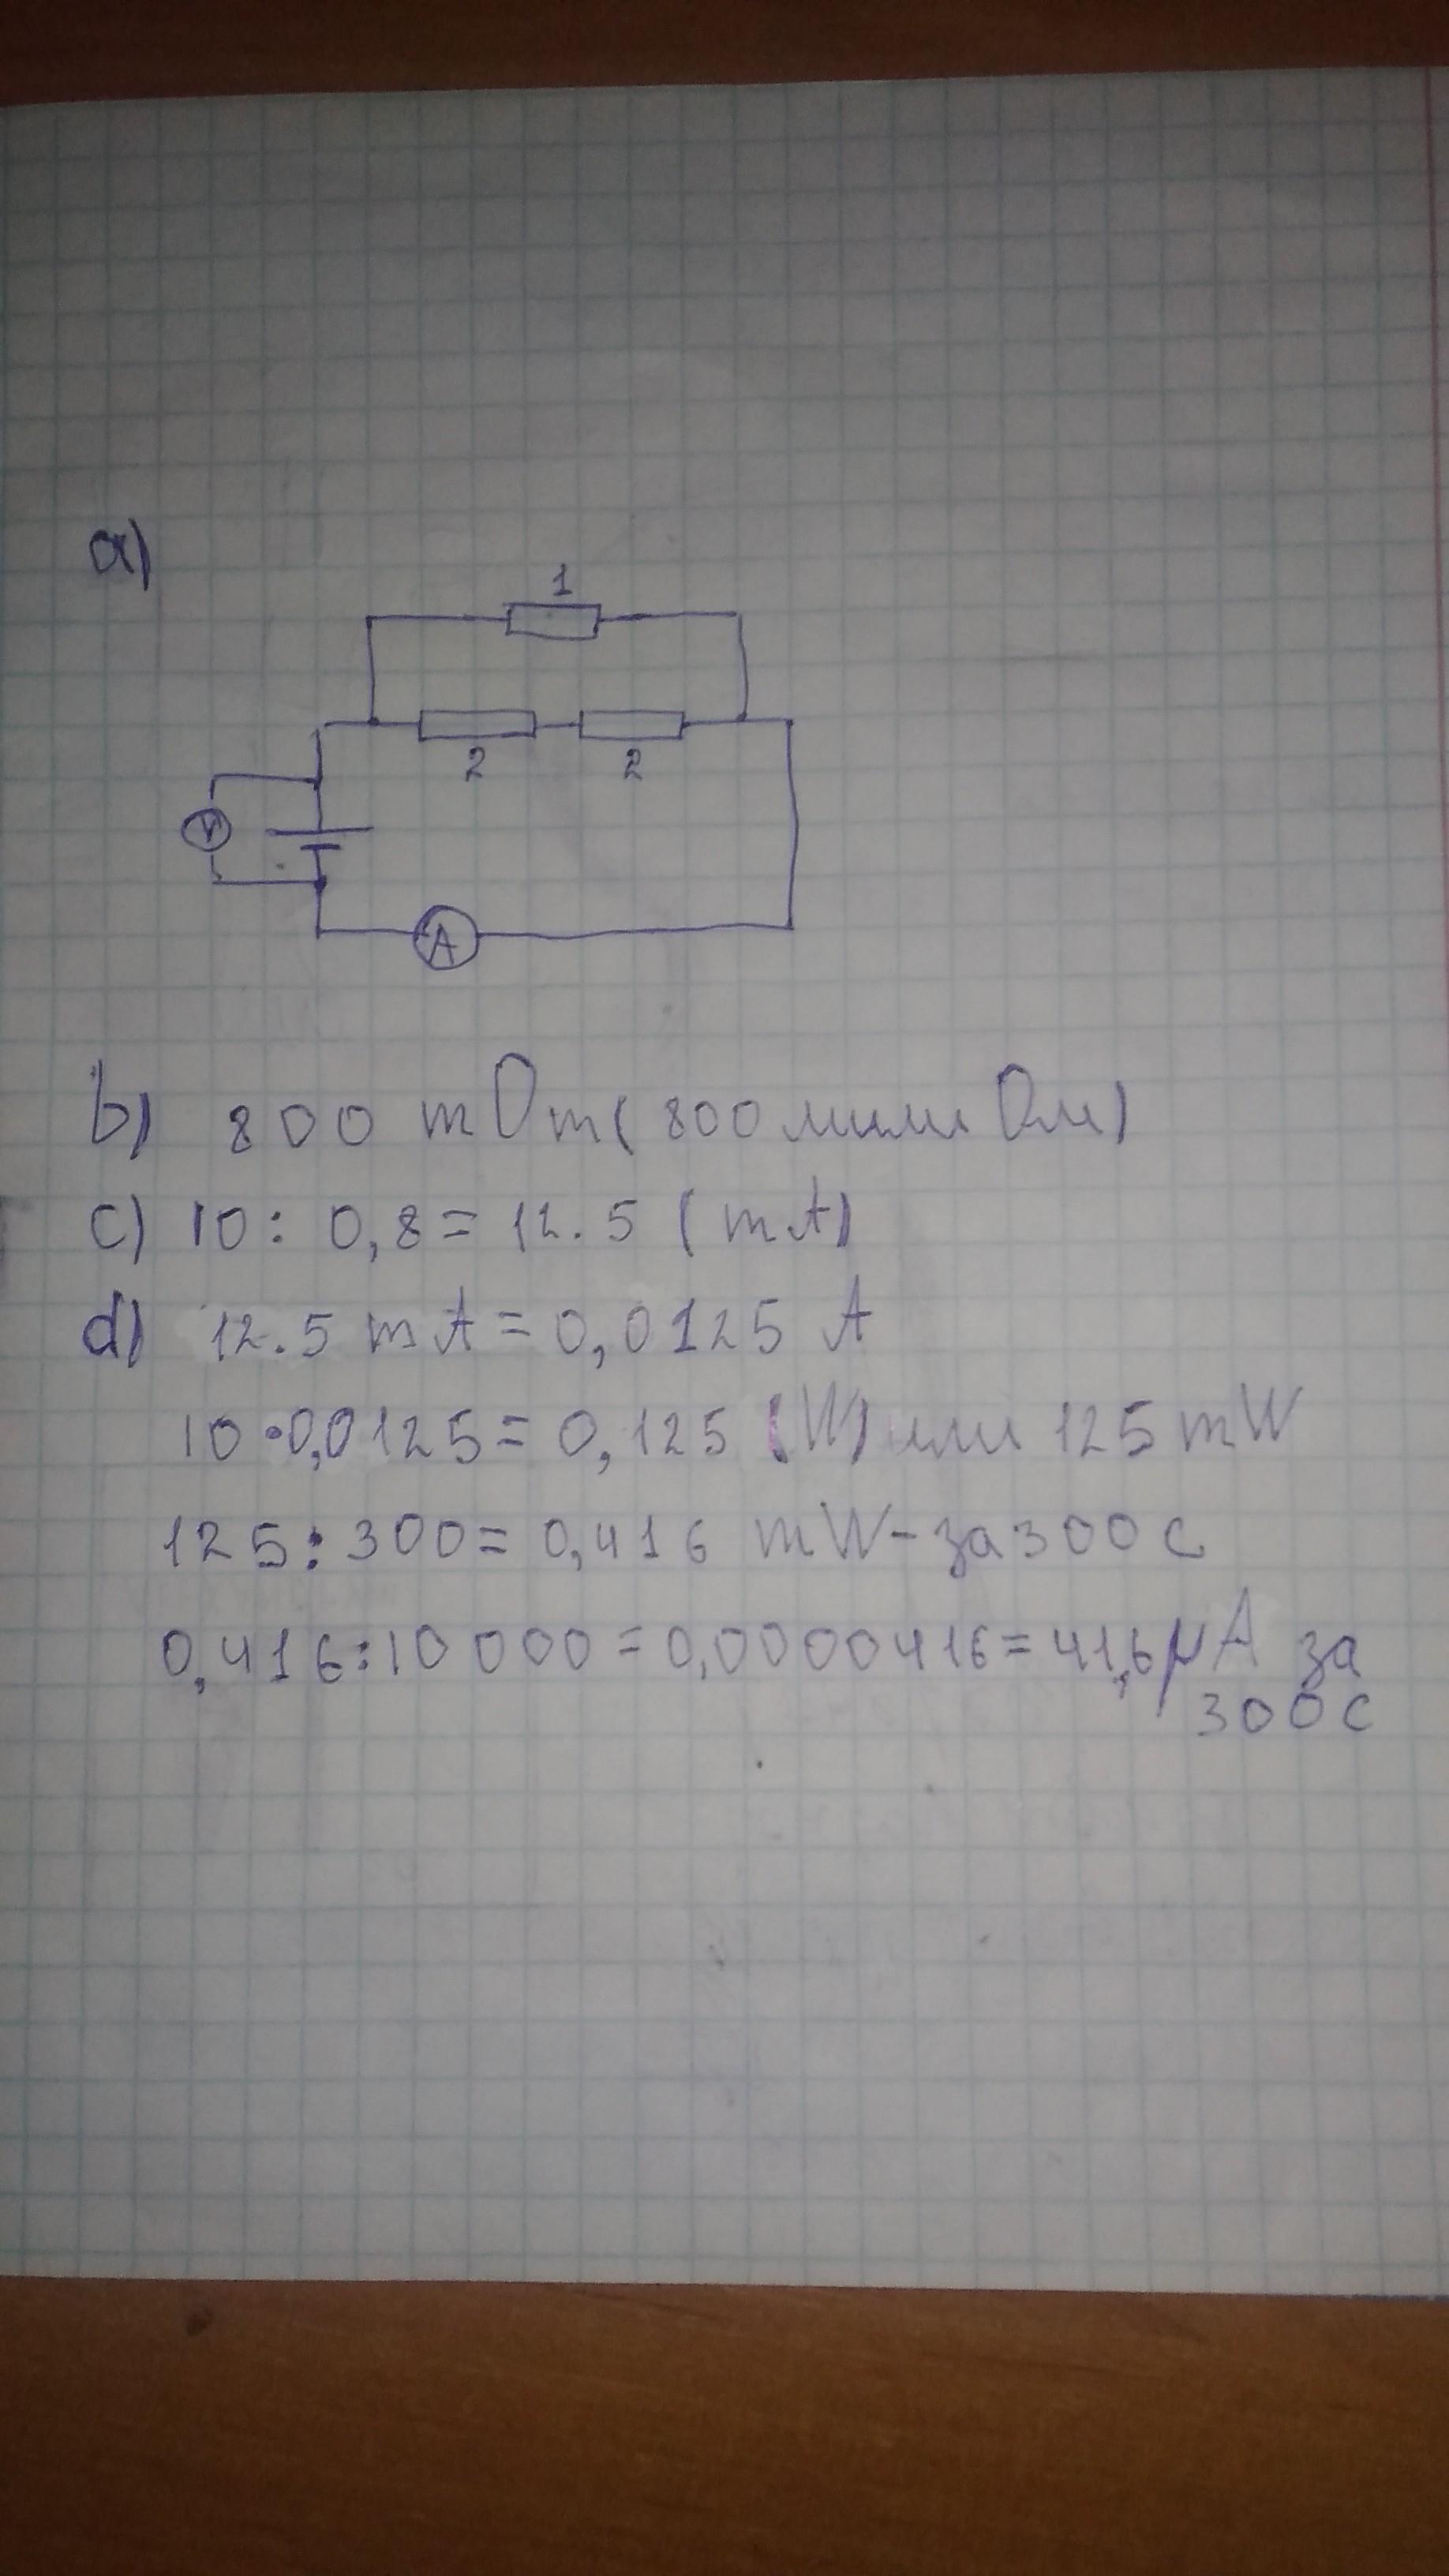 a)
1
2 2
V
A
b) 800 mOm (800 мили Ом)
c) 10 : 0,8 = 12.5 (mA)
d) 12.5 mA = 0,0125 A
10 • 0,0125 = 0,125 (W) или 125 mW
125 : 300 = 0,416 mW - за 300 с
0,416 : 10 000 = 0,0000416 = 41,6 μA за
300 с